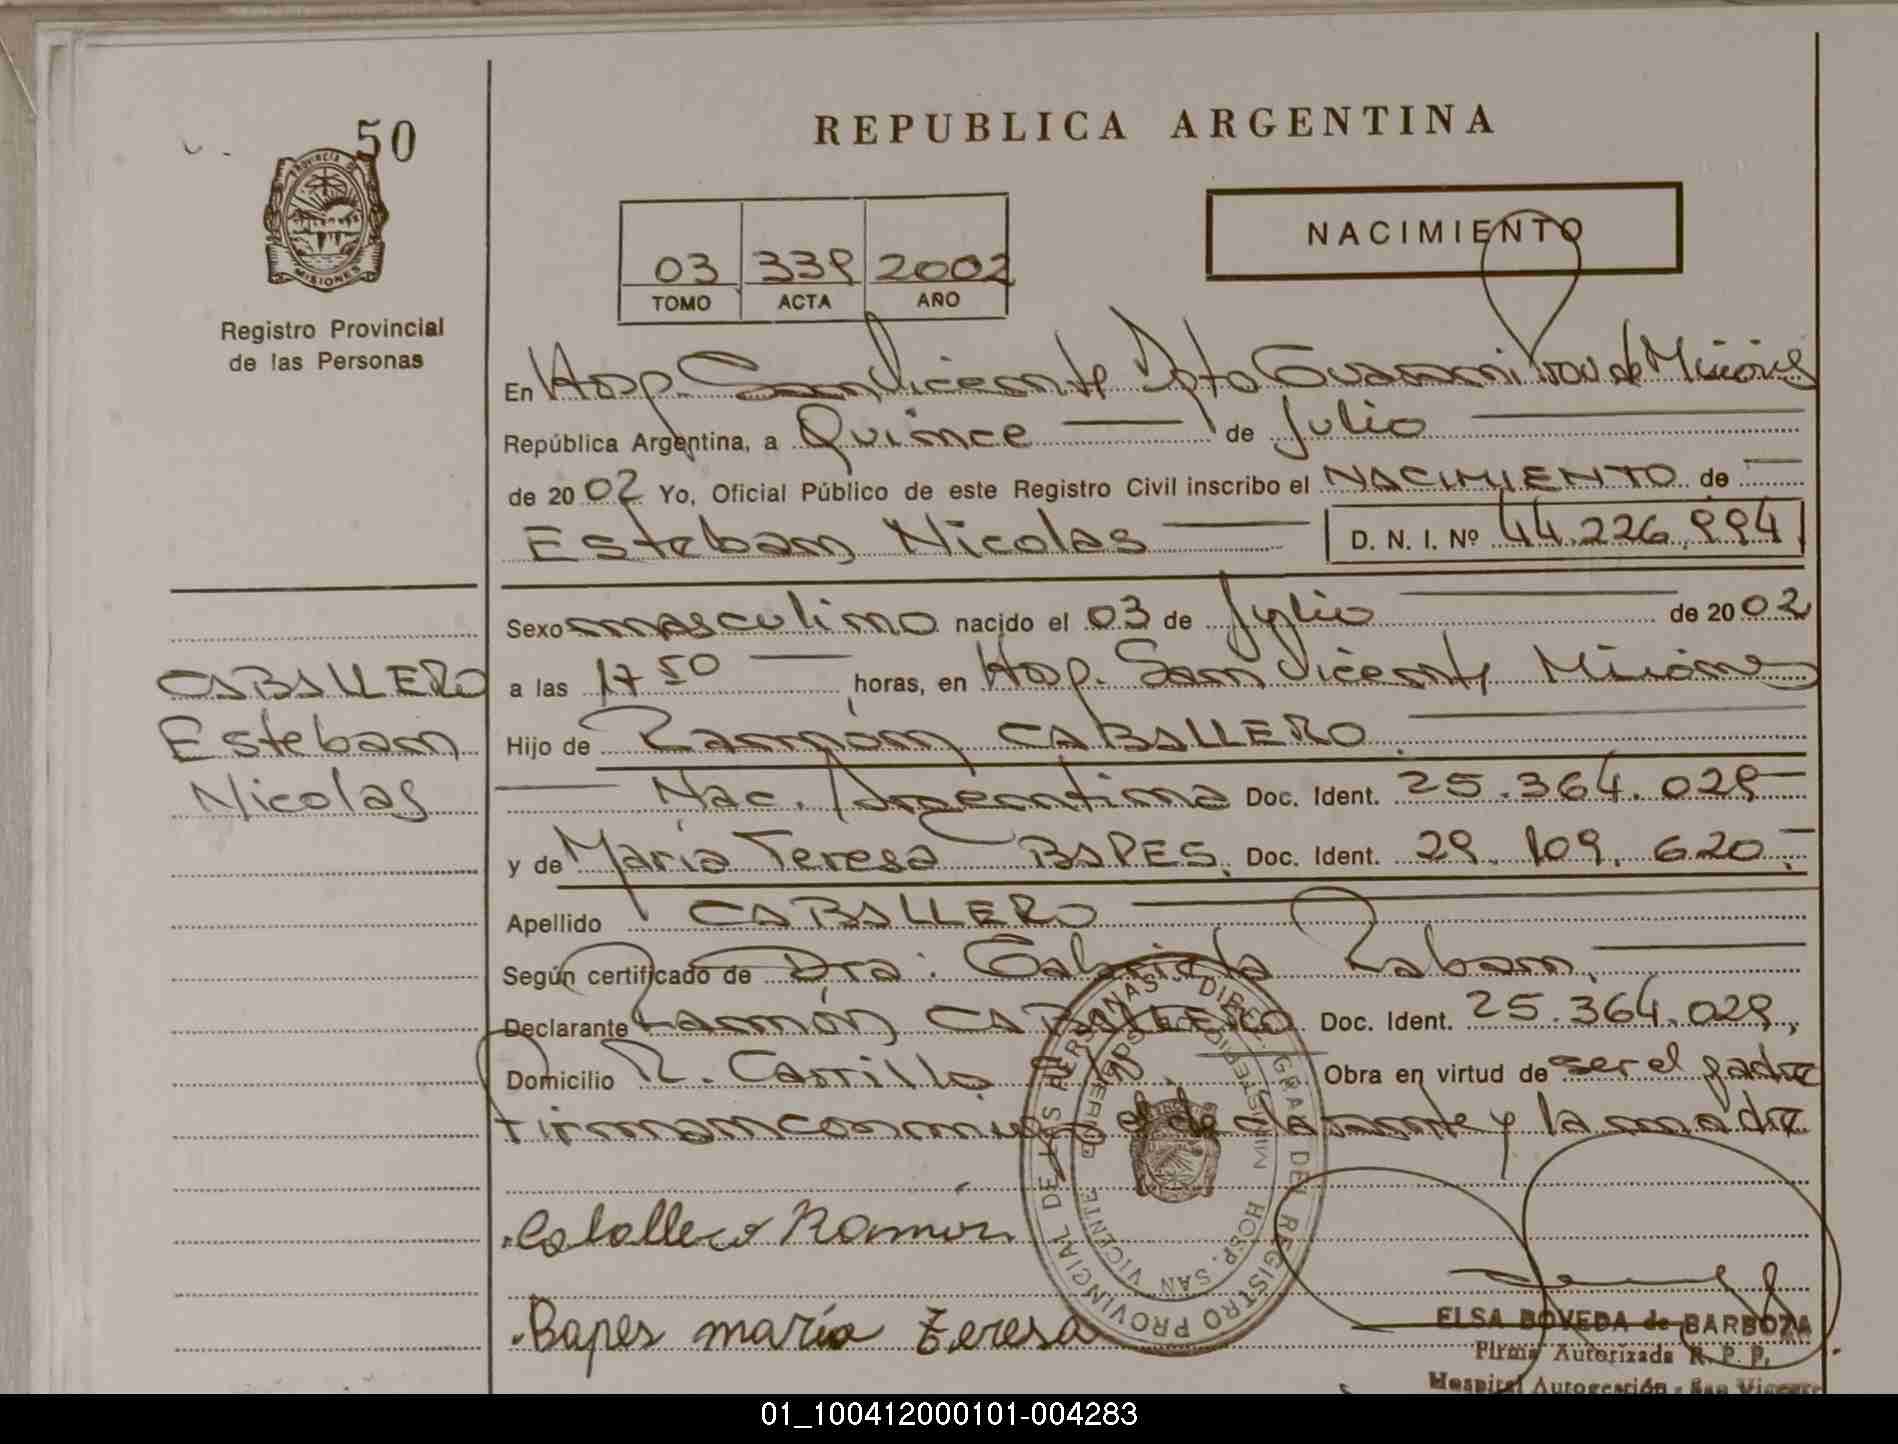 50
PROVINCIA DE
MISIONES
Registro Provincial
de las Personas
REPUBLICA ARGENTINA
NACIMIENTO
03 339 2002
TOMO ACTA AÑO
En Hosp. San Vicente Dpto Guarani Prov de Misiones
República Argentina, a Quince de Julio
de 2002 Yo, Oficial Público de este Registro Civil inscribo el NACIMIENTO de
Esteban Nicolas D. N. I. Nº 44.226.994
Sexo masculino nacido el 03 de Julio de 2002
a las 17 50 horas, en Hosp. San Vicente Misiones
CABALLERO
Esteban
Nicolas
Hijo de Ramón CABALLERO
Nac. Argentina Doc. Ident. 25.364.029
y de María Teresa BAPES. Doc. Ident. 29.109.620.
Apellido CABALLERO
Según certificado de Dra. Gabriela Raban.
Declarante Ramón CABALLERO. Doc. Ident. 25.364.029,
Domicilio R. Carrillo Obra en virtud de ser el padre
firman conmigo el declarante y la madre
Caballero Ramón
Bapes maría Teresa
REGISTRO PROVINCIAL DE LAS PERSONAS - DIREC. GRAL DEL
HOSP. SAN VICENTE
ELSA BOVEDA de BARBOZA
Firma Autorizada R. P. P.
Hospital Autogestión - San Vicente
01_100412000101-004283